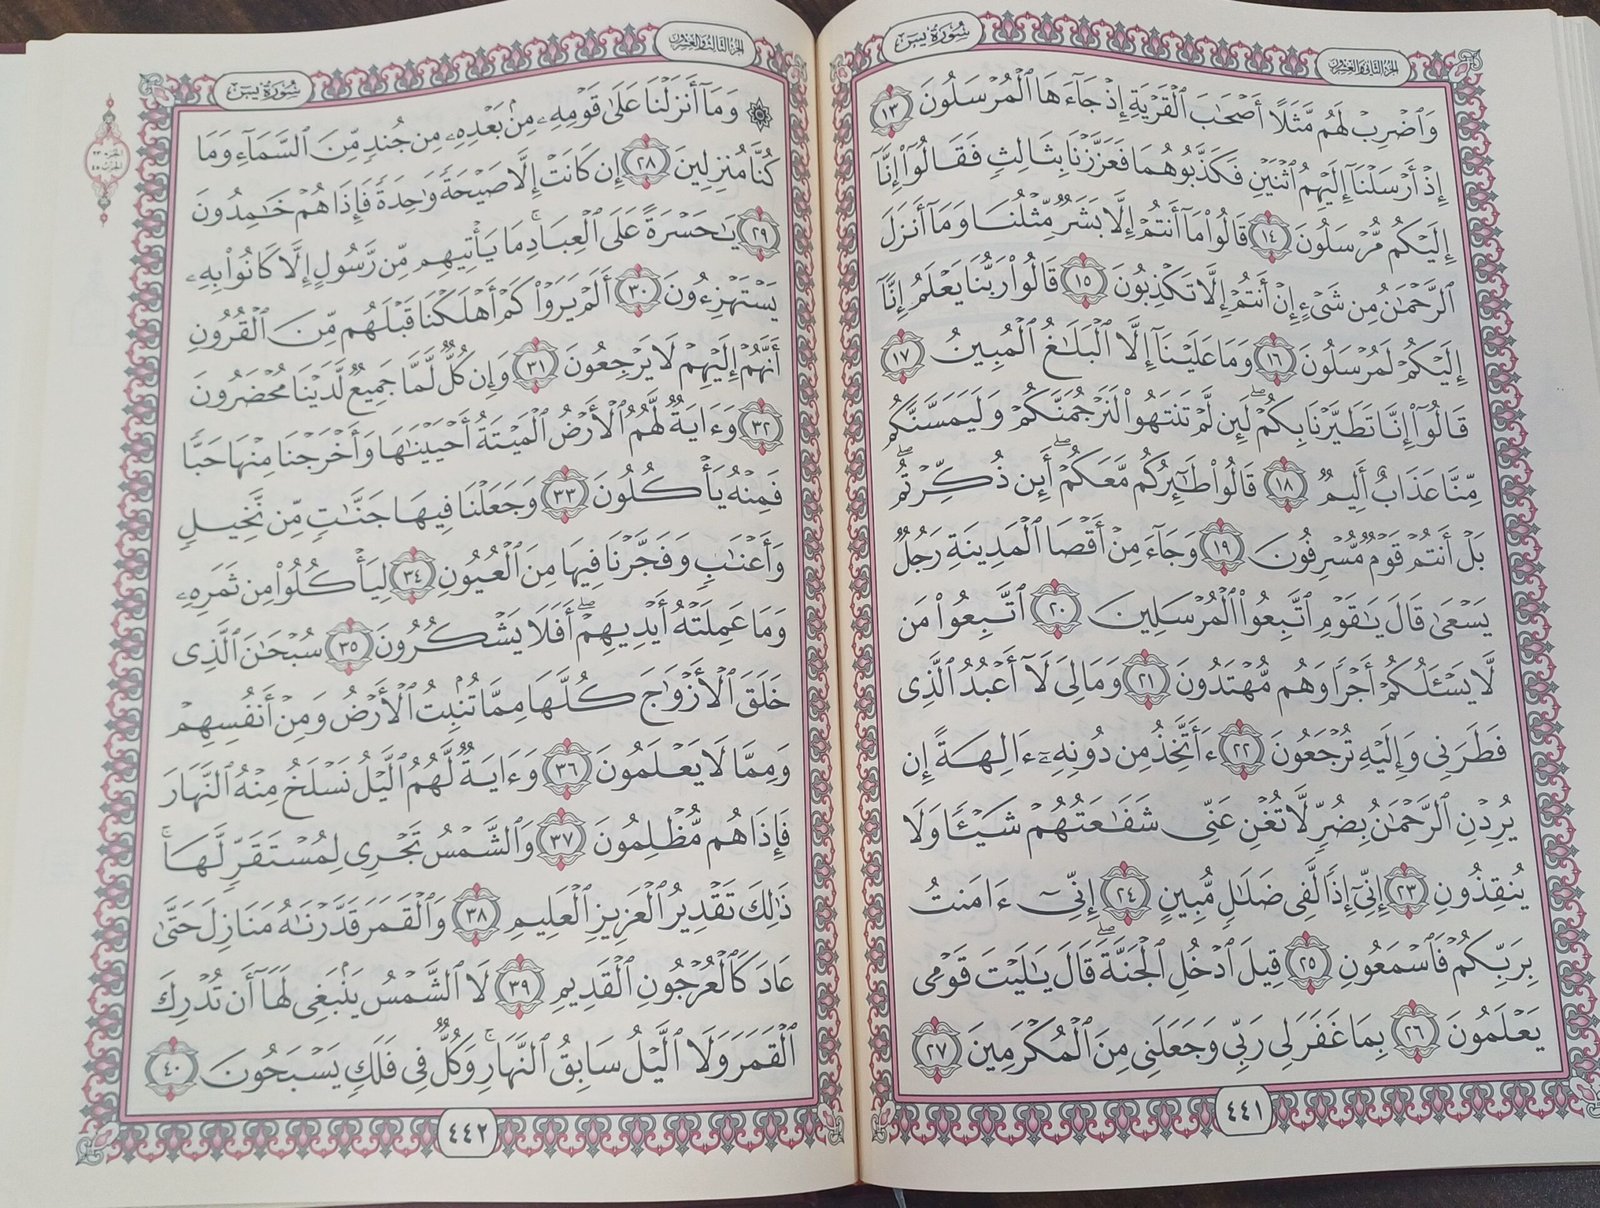 سُورَةُ يسٓ
الجزء الثاني والعشرون
وَٱضۡرِبۡ لَهُم مَّثَلًا أَصۡحَٰبَ ٱلۡقَرۡيَةِ إِذۡ جَآءَهَا ٱلۡمُرۡسَلُونَ ١٣
إِذۡ أَرۡسَلۡنَآ إِلَيۡهِمُ ٱثۡنَيۡنِ فَكَذَّبُوهُمَا فَعَزَّزۡنَا بِثَالِثٖ فَقَالُوٓاْ إِنَّآ
إِلَيۡكُم مُّرۡسَلُونَ ١٤ قَالُواْ مَآ أَنتُمۡ إِلَّا بَشَرٞ مِّثۡلُنَا وَمَآ أَنزَلَ
ٱلرَّحۡمَٰنُ مِن شَيۡءٍ إِنۡ أَنتُمۡ إِلَّا تَكۡذِبُونَ ١٥ قَالُواْ رَبُّنَا يَعۡلَمُ إِنَّآ
إِلَيۡكُمۡ لَمُرۡسَلُونَ ١٦ وَمَا عَلَيۡنَآ إِلَّا ٱلۡبَلَٰغُ ٱلۡمُبِينُ ١٧
قَالُوٓاْ إِنَّا تَطَيَّرۡنَا بِكُمۡۖ لَئِن لَّمۡ تَنتَهُواْ لَنَرۡجُمَنَّكُمۡ وَلَيَمَسَّنَّكُم
مِّنَّا عَذَابٌ أَلِيمٞ ١٨ قَالُواْ طَٰٓئِرُكُم مَّعَكُمۡ أَئِن ذُكِّرۡتُمۚ
بَلۡ أَنتُمۡ قَوۡمٞ مُّسۡرِفُونَ ١٩ وَجَآءَ مِنۡ أَقۡصَا ٱلۡمَدِينَةِ رَجُلٞ
يَسۡعَىٰ قَالَ يَٰقَوۡمِ ٱتَّبِعُواْ ٱلۡمُرۡسَلِينَ ٢٠ ٱتَّبِعُواْ مَن
لَّا يَسۡـَٔلُكُمۡ أَجۡرٗا وَهُم مُّهۡتَدُونَ ٢١ وَمَالِيَ لَآ أَعۡبُدُ ٱلَّذِي
فَطَرَنِي وَإِلَيۡهِ تُرۡجَعُونَ ٢٢ ءَأَتَّخِذُ مِن دُونِهِۦٓ ءَالِهَةً إِن
يُرِدۡنِ ٱلرَّحۡمَٰنُ بِضُرّٖ لَّا تُغۡنِ عَنِّي شَفَٰعَتُهُمۡ شَيۡـٔٗا وَلَا
يُنقِذُونِ ٢٣ إِنِّيٓ إِذٗا لَّفِي ضَلَٰلٖ مُّبِينٍ ٢٤ إِنِّيٓ ءَامَنتُ
بِرَبِّكُمۡ فَٱسۡمَعُونِ ٢٥ قِيلَ ٱدۡخُلِ ٱلۡجَنَّةَۖ قَالَ يَٰلَيۡتَ قَوۡمِي
يَعۡلَمُونَ ٢٦ بِمَا غَفَرَ لِي رَبِّي وَجَعَلَنِي مِنَ ٱلۡمُكۡرَمِينَ ٢٧
٤٤١
الجزء الثالث والعشرون
سُورَةُ يسٓ
الجزء ٢٣
الحزب ٤٥
۞ وَمَآ أَنزَلۡنَا عَلَىٰ قَوۡمِهِۦ مِنۢ بَعۡدِهِۦ مِن جُندٖ مِّنَ ٱلسَّمَآءِ وَمَا
كُنَّا مُنزِلِينَ ٢٨ إِن كَانَتۡ إِلَّا صَيۡحَةٗ وَٰحِدَةٗ فَإِذَا هُمۡ خَٰمِدُونَ
٢٩ يَٰحَسۡرَةً عَلَى ٱلۡعِبَادِۚ مَا يَأۡتِيهِم مِّن رَّسُولٍ إِلَّا كَانُواْ بِهِۦ
يَسۡتَهۡزِءُونَ ٣٠ أَلَمۡ يَرَوۡاْ كَمۡ أَهۡلَكۡنَا قَبۡلَهُم مِّنَ ٱلۡقُرُونِ
أَنَّهُمۡ إِلَيۡهِمۡ لَا يَرۡجِعُونَ ٣١ وَإِن كُلّٞ لَّمَّا جَمِيعٞ لَّدَيۡنَا مُحۡضَرُونَ
٣٢ وَءَايَةٞ لَّهُمُ ٱلۡأَرۡضُ ٱلۡمَيۡتَةُ أَحۡيَيۡنَٰهَا وَأَخۡرَجۡنَا مِنۡهَا حَبّٗا
فَمِنۡهُ يَأۡكُلُونَ ٣٣ وَجَعَلۡنَا فِيهَا جَنَّٰتٖ مِّن نَّخِيلٖ
وَأَعۡنَٰبٖ وَفَجَّرۡنَا فِيهَا مِنَ ٱلۡعُيُونِ ٣٤ لِيَأۡكُلُواْ مِن ثَمَرِهِۦ
وَمَا عَمِلَتۡهُ أَيۡدِيهِمۡۚ أَفَلَا يَشۡكُرُونَ ٣٥ سُبۡحَٰنَ ٱلَّذِي
خَلَقَ ٱلۡأَزۡوَٰجَ كُلَّهَا مِمَّا تُنۢبِتُ ٱلۡأَرۡضُ وَمِنۡ أَنفُسِهِمۡ
وَمِمَّا لَا يَعۡلَمُونَ ٣٦ وَءَايَةٞ لَّهُمُ ٱلَّيۡلُ نَسۡلَخُ مِنۡهُ ٱلنَّهَارَ
فَإِذَا هُم مُّظۡلِمُونَ ٣٧ وَٱلشَّمۡسُ تَجۡرِي لِمُسۡتَقَرّٖ لَّهَاۚ
ذَٰلِكَ تَقۡدِيرُ ٱلۡعَزِيزِ ٱلۡعَلِيمِ ٣٨ وَٱلۡقَمَرَ قَدَّرۡنَٰهُ مَنَازِلَ حَتَّىٰ
عَادَ كَٱلۡعُرۡجُونِ ٱلۡقَدِيمِ ٣٩ لَا ٱلشَّمۡسُ يَنۢبَغِي لَهَآ أَن تُدۡرِكَ
ٱلۡقَمَرَ وَلَا ٱلَّيۡلُ سَابِقُ ٱلنَّهَارِۚ وَكُلّٞ فِي فَلَكٖ يَسۡبَحُونَ ٤٠
٤٤٢